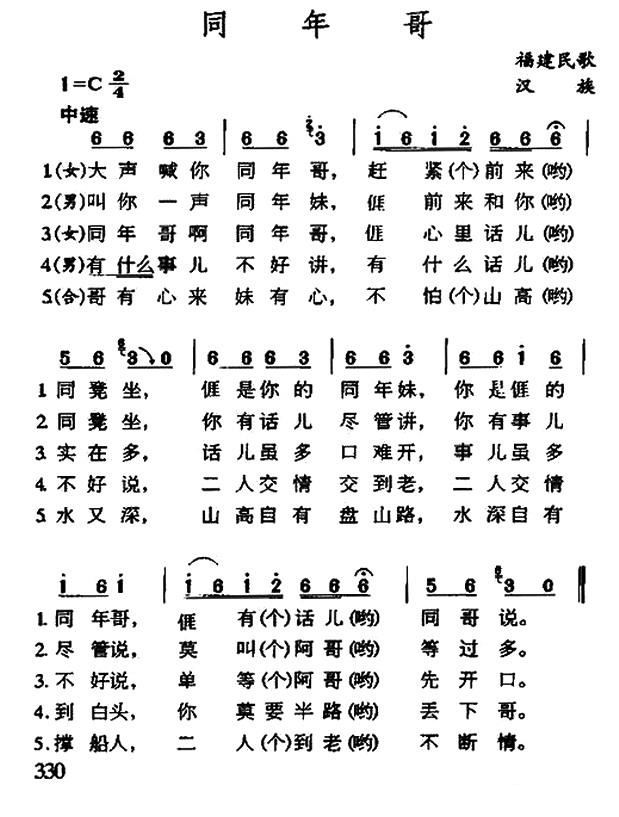 同 年 哥
福建民歌
1=C 2/4
汉 族
中速
6 6 6 3 | 6 6 3 | i 6 i 2 6 6 6 |
1(女)大 声 喊 你 同 年 哥, 赶 紧(个)前 来(哟)
2(男)叫 你 一 声 同 年 妹, 𠊎 前 来 和 你(哟)
3(女)同 年 哥 啊 同 年 哥, 𠊎 心 里 话 儿(哟)
4(男)有 什么 事 儿 不 好 讲, 有 什 么 话 儿(哟)
5.(合)哥 有 心 来 妹 有 心, 不 怕(个)山 高(哟)
5 6 3 0 | 6 6 6 3 | 6 6 3 | 6 6 i 6 |
1. 同 凳 坐, 𠊎 是 你 的 同 年 妹, 你 是 𠊎 的
2. 同 凳 坐, 你 有 话 儿 尽 管 讲, 你 有 事 儿
3. 实 在 多, 话 儿 虽 多 口 难 开, 事 儿 虽 多
4. 不 好 说, 二 人 交 情 交 到 老, 二 人 交 情
5. 水 又 深, 山 高 自 有 盘 山 路, 水 深 自 有
i 6 i | i 6 i 2 6 6 6 | 5 6 3 0
1. 同 年 哥, 𠊎 有(个)话 儿(哟) 同 哥 说。
2. 尽 管 说, 莫 叫(个)阿 哥(哟) 等 过 多。
3. 不 好 说, 单 等(个)阿 哥(哟) 先 开 口。
4. 到 白 头, 你 莫 要 半 路(哟) 丢 下 哥。
5. 撑 船 人, 二 人(个)到 老(哟) 不 断 情。
330